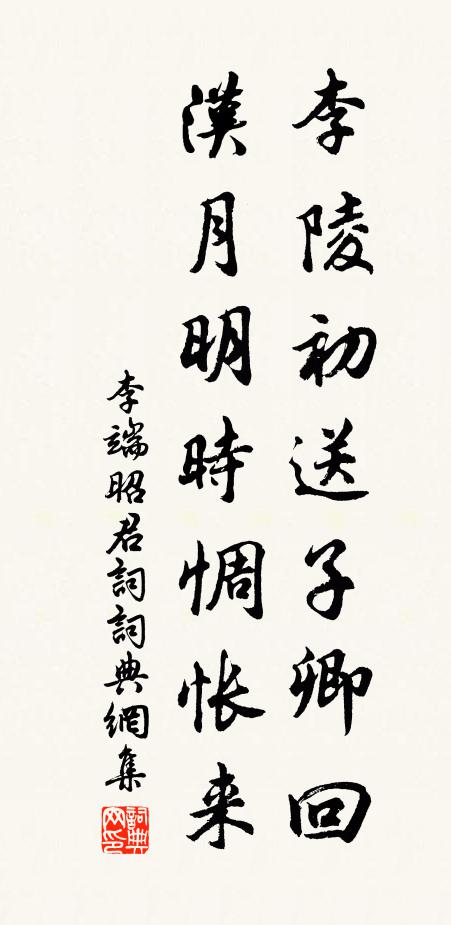 李陵初送子卿回
漢月明時惆怅来
李端昭君詞詞典網集
詞典网印